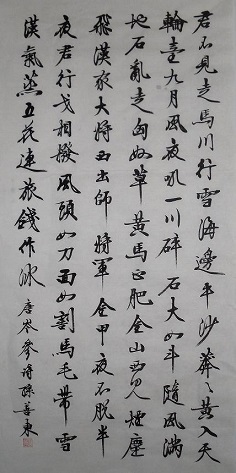 君不見走馬川行雪海邊平沙莽々黃入天
輪臺九月風夜吼一川碎石大如斗隨風滿
地石亂走匈奴草黃馬正肥金山西見煙塵
飛漢家大將西出師將軍金甲夜不脫半
夜君行戈相撥風頭如刀面如割馬毛帶雪
漢氣蒸五花連旋錢作冰唐岑參詩孫善東